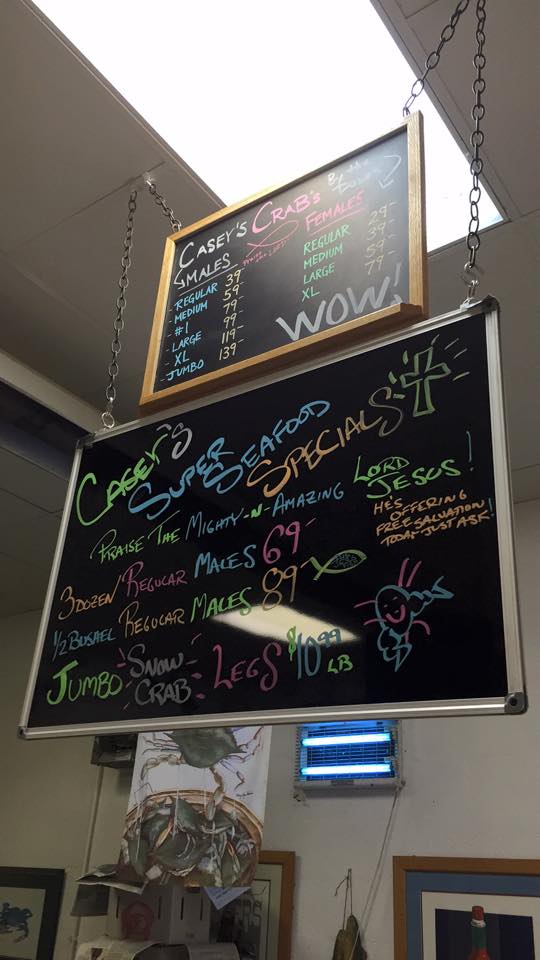 CASEY'S CRAB'S
MALES
FEMALES
- REGULAR 39-
- MEDIUM 59-
- #1 79-
- LARGE 99-
- XL 119-
- JUMBO 139-
REGULAR 29-
MEDIUM 39-
LARGE 59-
XL 79-
WOW!
CASEY'S
SUPER
SEAFOOD
SPECIALS
PRAISE THE MIGHTY-N-AMAZING
LORD
JESUS!
HE'S OFFERING
FREE SALVATION!
TODAY-JUST ASK!
3 DOZEN REGULAR MALES 69-
1/2 BUSHEL REGULAR MALES 89-
JUMBO SNOW-
CRAB LEGS $10.99
LB